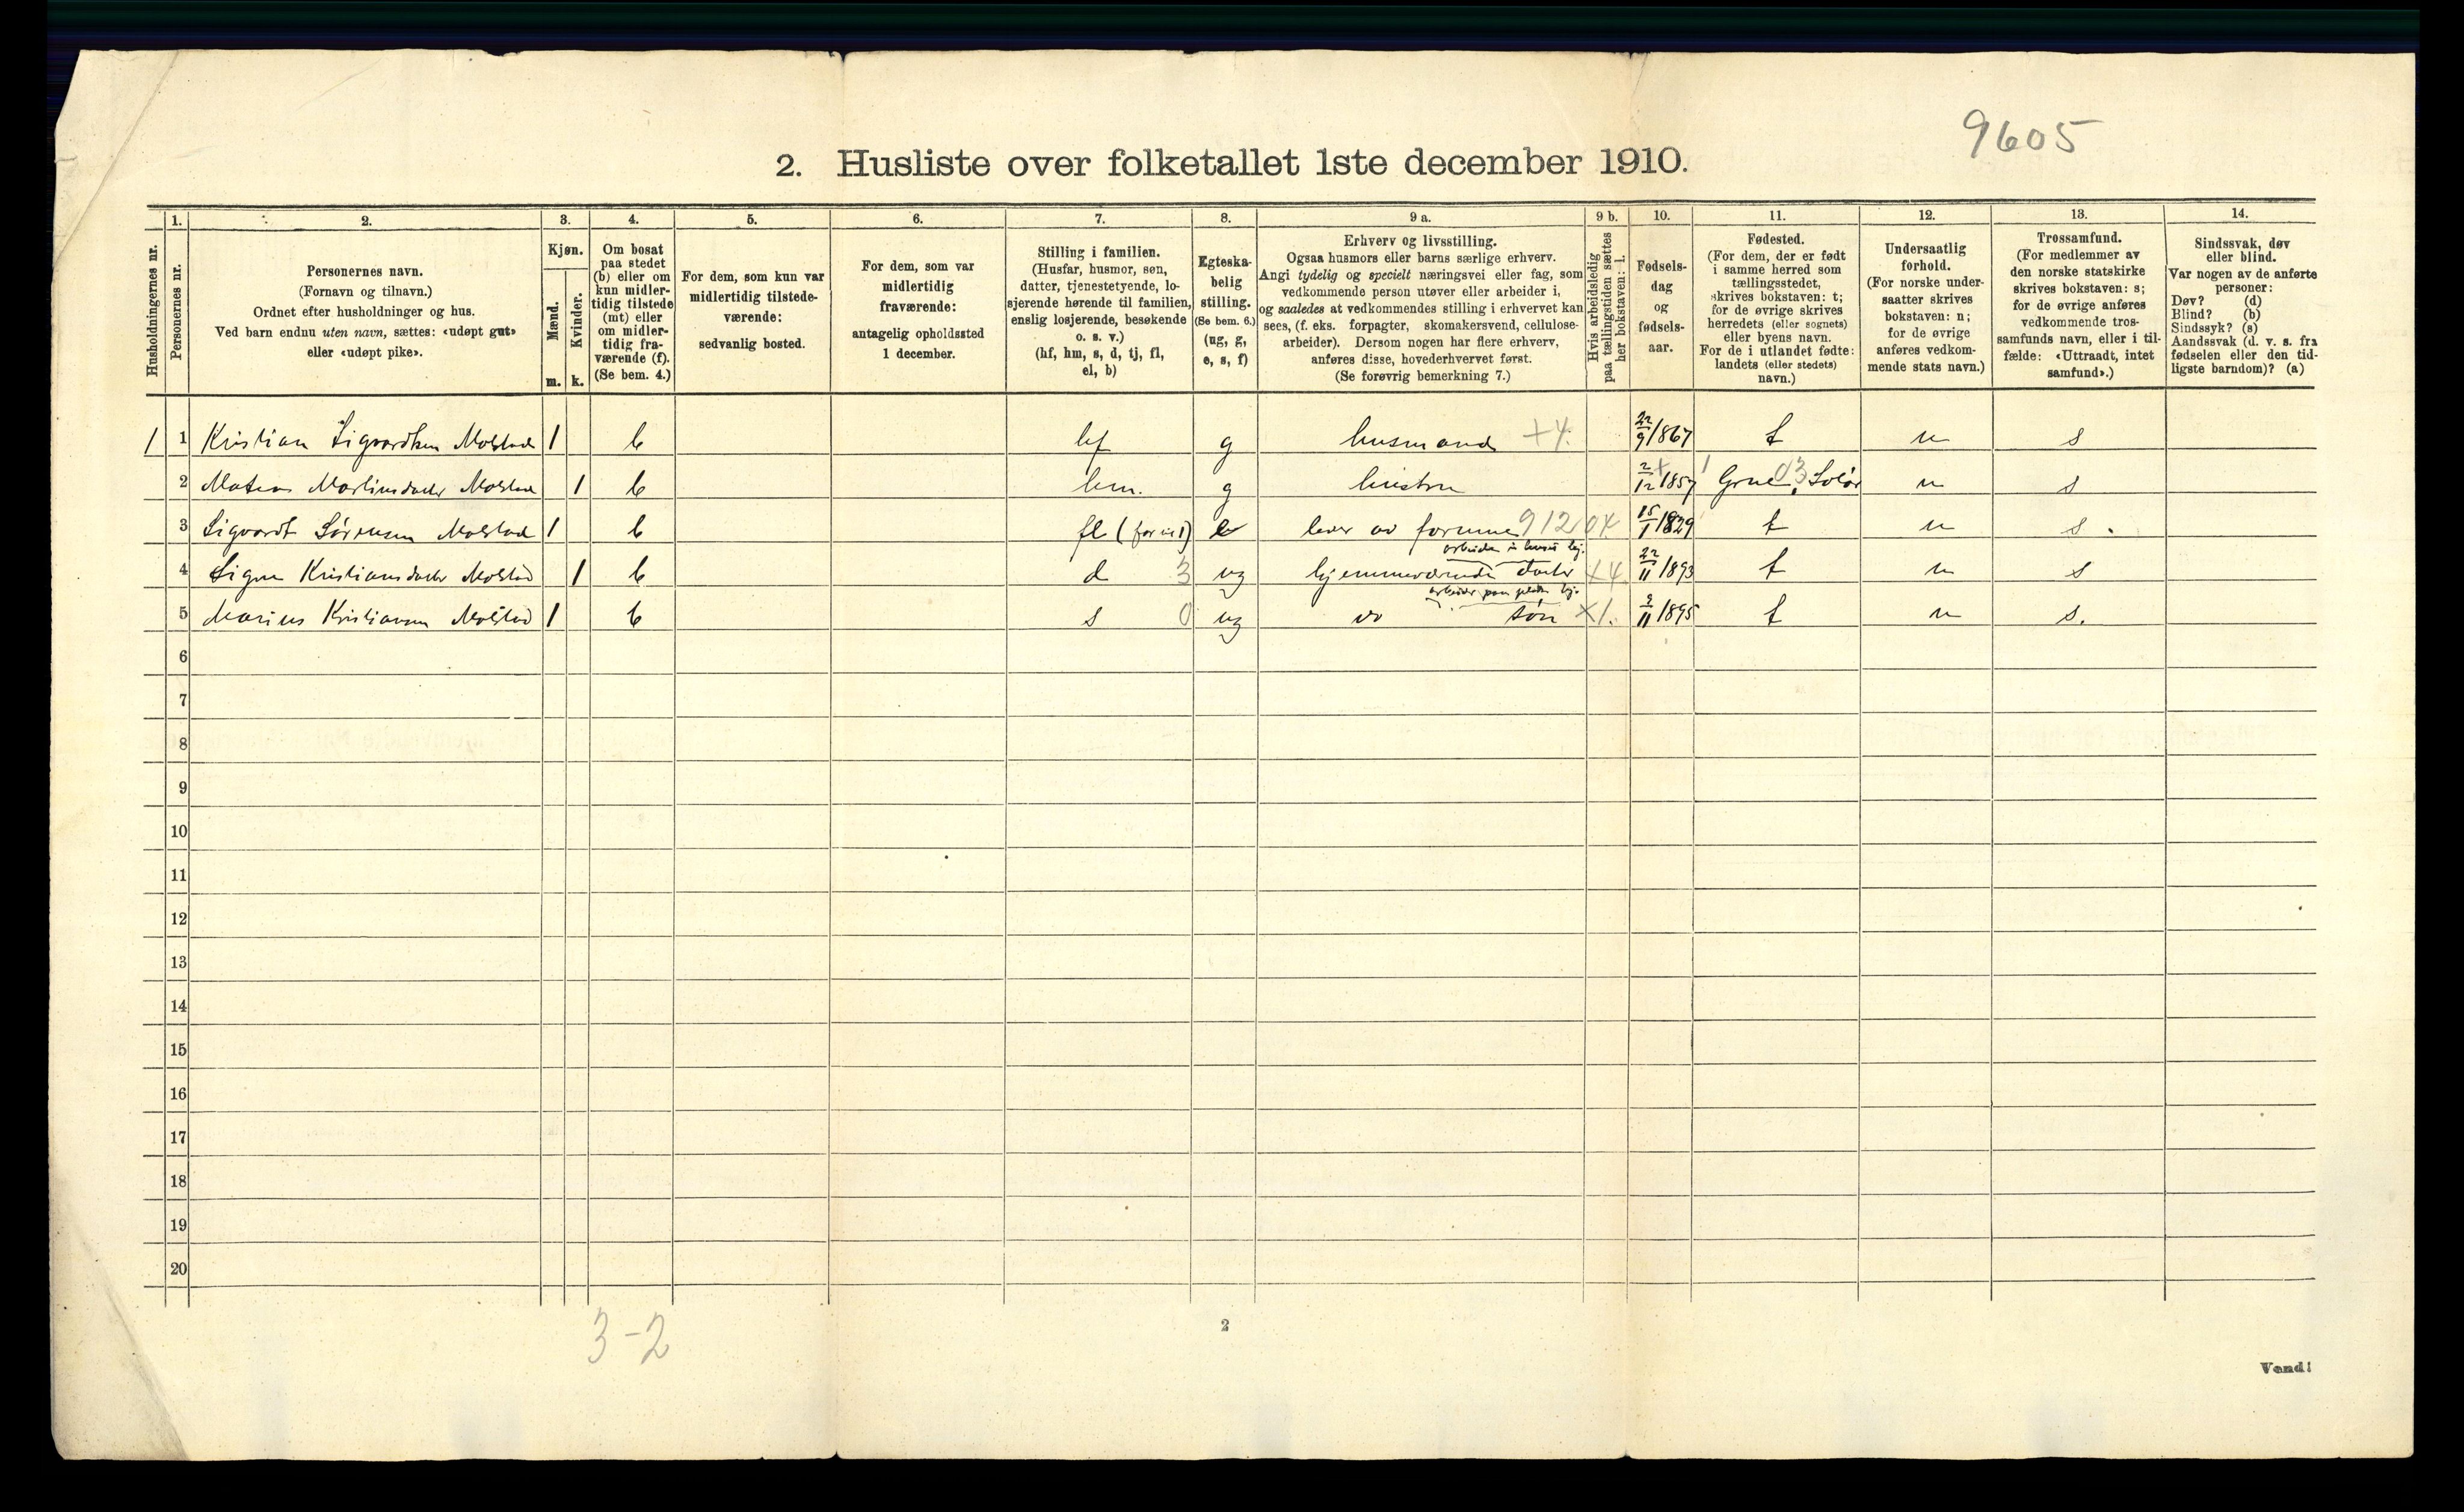 9605
2. Husliste over folketallet 1ste december 1910.
Husholdningernes nr.
1.
Personernes nr.
2.
Personernes navn.
(Fornavn og tilnavn.)
Ordnet efter husholdninger og hus.
Ved barn endnu uten navn, sættes: «udøpt gut»
eller «udøpt pike».
3.
Kjøn.
Mænd.
Kvinder.
m. k.
4.
Om bosat
paa stedet
(b) eller om
kun midler-
tidig tilstede
(mt) eller
om midler-
tidig fra-
værende (f).
(Se bem. 4.)
5.
For dem, som kun var
midlertidig tilstede-
værende:
sedvanlig bosted.
6.
For dem, som var
midlertidig
fraværende:
antagelig opholdssted
1 december.
7.
Stilling i familien.
(Husfar, husmor, søn,
datter, tjenestetyende, lo-
sjerende hørende til familien,
enslig losjerende, besøkende
o. s. v.)
(hf, hm, s, d, tj, fl,
el, b)
8.
Egteska-
belig
stilling.
(Se bem. 6.)
(ug, g,
e, s, f)
9 a.
Erhverv og livsstilling.
Ogsaa husmors eller barns særlige erhverv.
Angi tydelig og specielt næringsvei eller fag, som
vedkommende person utøver eller arbeider i,
og saaledes at vedkommendes stilling i erhvervet kan
sees, (f. eks. forpagter, skomakersvend, cellulose-
arbeider). Dersom nogen har flere erhverv,
anføres disse, hovederhvervet først.
(Se forøvrig bemerkning 7.)
9 b.
Hvis arbeidsledig
paa tællingstiden sættes
her bokstaven: l.
10.
Fødsels-
dag
og
fødsels-
aar.
11.
Fødested.
(For dem, der er født
i samme herred som
tællingsstedet,
skrives bokstaven: t;
for de øvrige skrives
herredets (eller sognets)
eller byens navn.
For de i utlandet fødte:
landets (eller stedets)
navn.)
12.
Undersaatlig
forhold.
(For norske under-
saatter skrives
bokstaven: n;
for de øvrige
anføres vedkom-
mende stats navn.)
13.
Trossamfund.
(For medlemmer av
den norske statskirke
skrives bokstaven: s;
for de øvrige anføres
vedkommende tros-
samfunds navn, eller i til-
fælde: «Uttraadt, intet
samfund».)
14.
Sindssvak, døv
eller blind.
Var nogen av de anførte
personer:
Døv? (d)
Blind? (b)
Sindssyk? (s)
Aandssvak (d. v. s. fra
fødselen eller den tid-
ligste barndom)? (a)
1 1 Kristian Sigvardsen Molstad 1 b hf g husmand +4. 22/9 1867 t n s
2 Martinsdatter Molstad 1 b hm. g hustru 2/12 1857 Grue, Solør n s
3 Sigvardt Sørensen Molstad 1 b fl e lever av formue 912 04 15/1 1829 t n s.
arbeider i huset
4 Signe Kristiansdatter Molstad 1 b d 3 ug hjemmeværende datter +4 22/11 1893 t n s
5 Marius Kristiansen Molstad 1 b s 0 ug do søn ×1. 9/11 1895 t n s.
6
7
8
9
10
11
12
13
14
15
16
17
18
19
20
3-2
2
Vend!